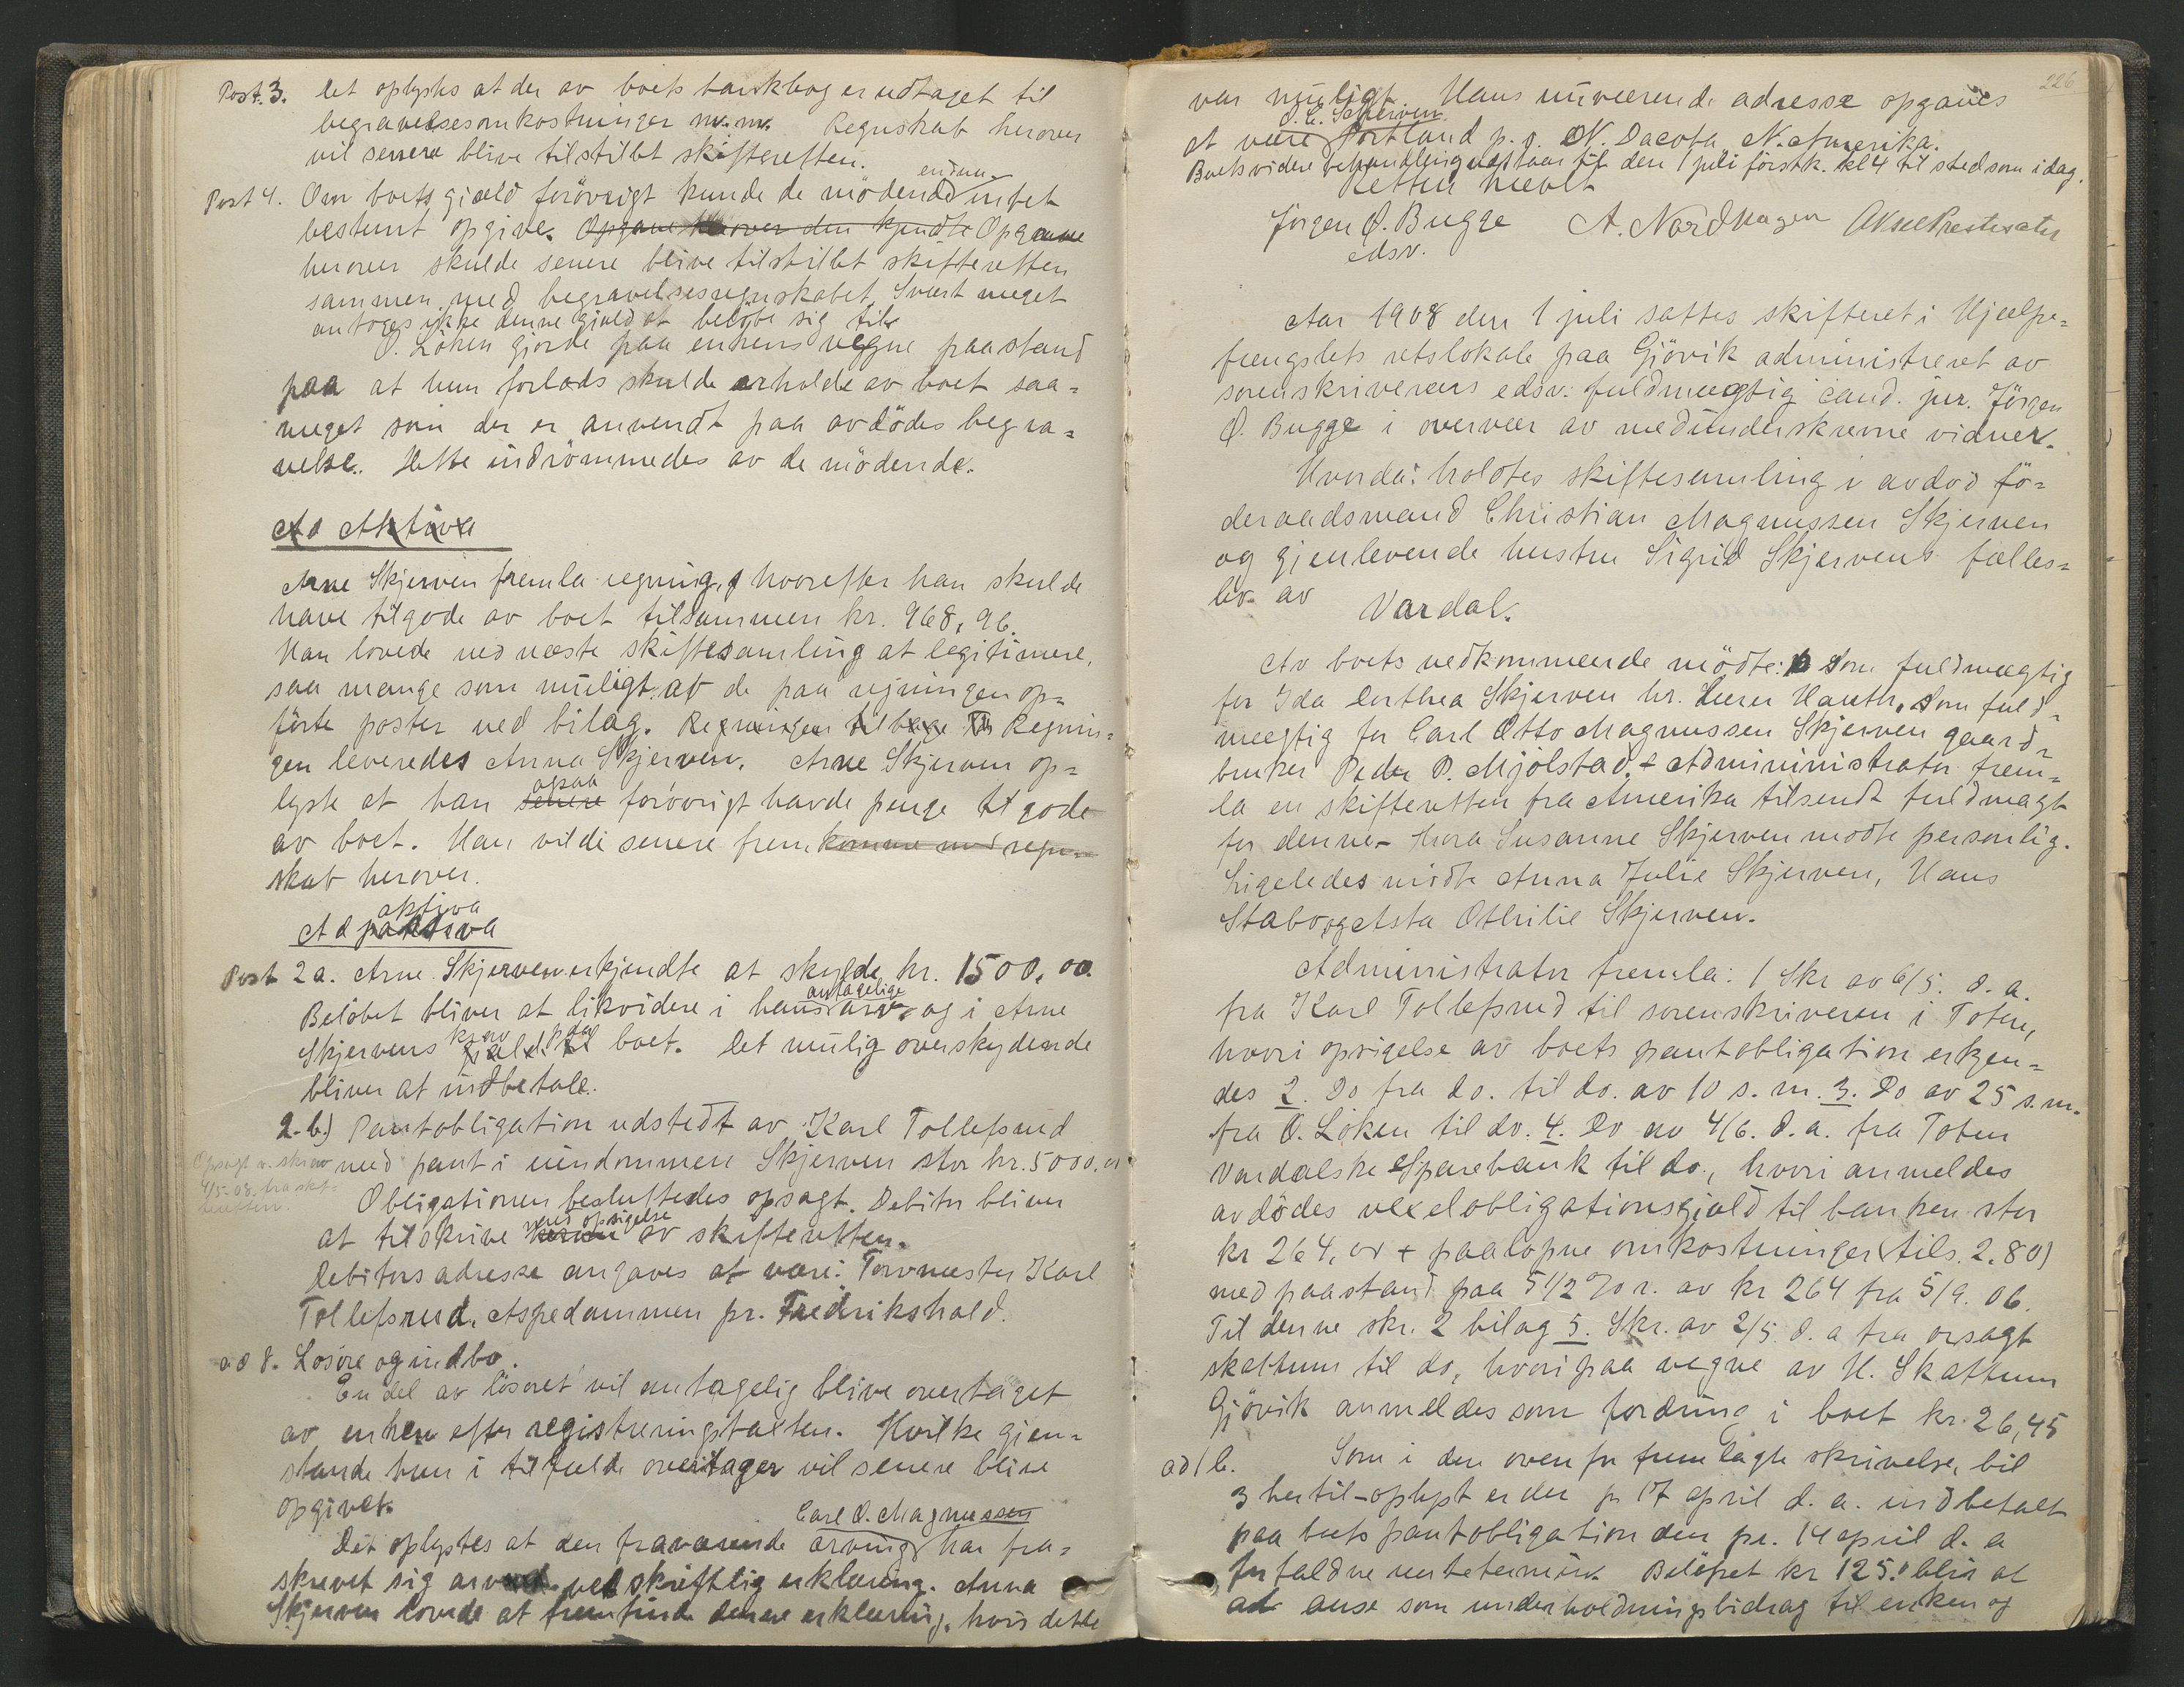 Post. 3. Det oplystes at der av boets bankbog er udtaget til
begravelsesomkostninger m.m. Regnskab herover
vil senere blive tilstillet skifteretten.
endnu
Post 4. Om boets gjæld forövrigt kunde de mödende intet
bestemt opgive. Opgave herover den kjendte Opgave
herover skulde senere blive tilstillet skifteretten
sammen med begravelsesregnskabet. Svært meget
antoges ikke denne gjæld at belöbe sig til.
O. Löken gjorde paa enkens vegne paastand
paa at hun forlods skulde erholde av boet saa=
meget som der er anvendt paa avdödes begra=
velse. Dette indrömmedes av de mödende.
Ad Aktiva
Arne Skjerven fremla regning, hvorefter han skulde
have tilgode av boet tilsammen kr. 968,96.
Han lovede ved næste skiftesamling at legitimere,
saa mange som muligt av de paa regningen op=
förte poster ved bilag. Regningen tilbage Regnin=
gen leveredes Anna Skjerven. Arne Skjerven op=
ogsaa
lyste at han senere forövrigt havde penge tilgode
av boet. Han vilde senere fremkomme med regn=
skab herover.
aktiva
Ad passiva
Post 2a. Arne Skjerven erkjendte at skylde kr. 1500,00.
antagelige
Belöbet bliver at likvidere i hans arv og i Arne
krav paa
Skjervens gjæld til boet. Det mulig overskydende
bliver at indbetale.
2.b) Pantobligation udstedt av Karl Tollefsrud
med pant i eiendommen Skjerven stor kr. 5000,00
Opsagt v. skriv
4/5-08 fra skf-
teretten.
Obligationen besluttedes opsagt. Debitor bliver
med opsigelse
at tilskrive herom av skifteretten.
Debitors adresse angaves at være: Torvmester Karl
Tollefsrud, Aspedammen pr. Fredrikshald.
ad 8. Lösöre og indbo.
En del av lösöret vil antagelig blive overtaget
av enken efter registreringstaksten. Hvilke gjen=
stande hun i tilfælde overtager vil senere blive
opgivet.
Carl O. Magnussen
Det oplystes at den fraværende arving har fra=
skrevet sig arv ved skriftlig erklæring. Anna
Skjerven lovede at fremfinde denne erklæring, hvis dette
226
var muligt. Hans nuværende adresse opgaves
O. C. Scherven
at være Portland p. o. N. Dacota N. Amerika.
Boets videre behandling utstaar til den 1 juli förstk. kl 4 til sted som idag.
Retten hævet
Jörgen Ø. Bugge A. Nordhagen Aksel Prestesæter
edsv.
Aar 1908 den 1 juli sattes skifteret i Hjælpe=
fængslets retslokale paa Gjövik administreret av
sorenskriverens edsv. fuldmægtig cand. jur. Jörgen
Ø. Bugge i overvær av medunderskrevne vidner.
Hvorda: holdtes skiftesamling i avdöd fö=
deraadsmand Christian Magnussen Skjerven
og gjenlevende hustru Sigrid Skjervens fælles=
bo av Vardal.
Av boets vedkommende mödte: Som fuldmægtig
for Ida Dorthea Skjerven hr. Hauth. Som fuld=
mægtig for Carl Otto Magnussen Skjerven gaard=
bruker Peder P. Mjölstad. Administrator frem=
la en skifteretten fra Amerika tilsendt fuldmagt
for denne. Thora Susanne Skjerven mödte personlig.
Ligeledes mödte Anna Julie Skjerven, Hans
Stabo og Asta Othilie Skjerven.
Administrator fremla: 1 Skr av 6/5. d. a.
fra Karl Tollefsrud til sorenskriveren i Toten,
hvori opsigelse av boets pantobligation erkjen=
des 2. Do fra do. til do. av 10 s. m. 3. Do av 25 s.m.
fra O. Löken til do. 4. Do av 4/6. d. a. fra Toten
Vardalske Sparebank til do., hvori anmeldes
avdödes vexelobligationsgjæld til banken stor
kr 264,00 + paalöpne omkostninger (tils. 2.80)
med paastand paa 5 1/2 % r. av kr 264 fra 5/9. 06.
Til denne skr. 2 bilag 5. Skr. av 2/5. d. a fra orsagf
Skattum til do, hvori paa vegne av H. Skattum
Gjövik anmeldes som fordring i boet kr. 26,45
ad 1 b. Som i den ovenfor fremlagte skrivelse, bil
3 hertil oplyst er der pr 17 april d. a. indbetalt
paa boets pantobligation den pr. 14 april d. a
forfaldne rentetermin. Belöpet kr 125.0 blir at
at anse som underholdningsbidrag til enken og